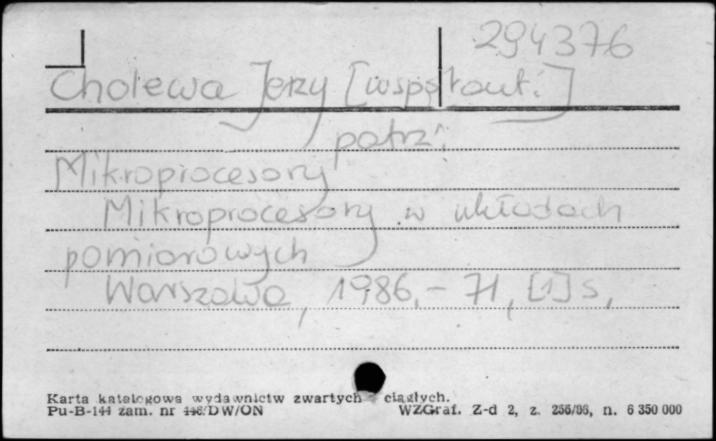 294376
Cholewa Jerzy [współaut.]
patrz:
Mikroprocesory
Mikroprocesory w układach
pomiarowych
Warszawa, 1986. - 71, [1] s.
Karta katalogowa wydawnictw zwartych ciągłych.
Pu-B-144 zam. nr DW/ON WZGraf. Z-d 2, z. 256/86, n. 6 350 000